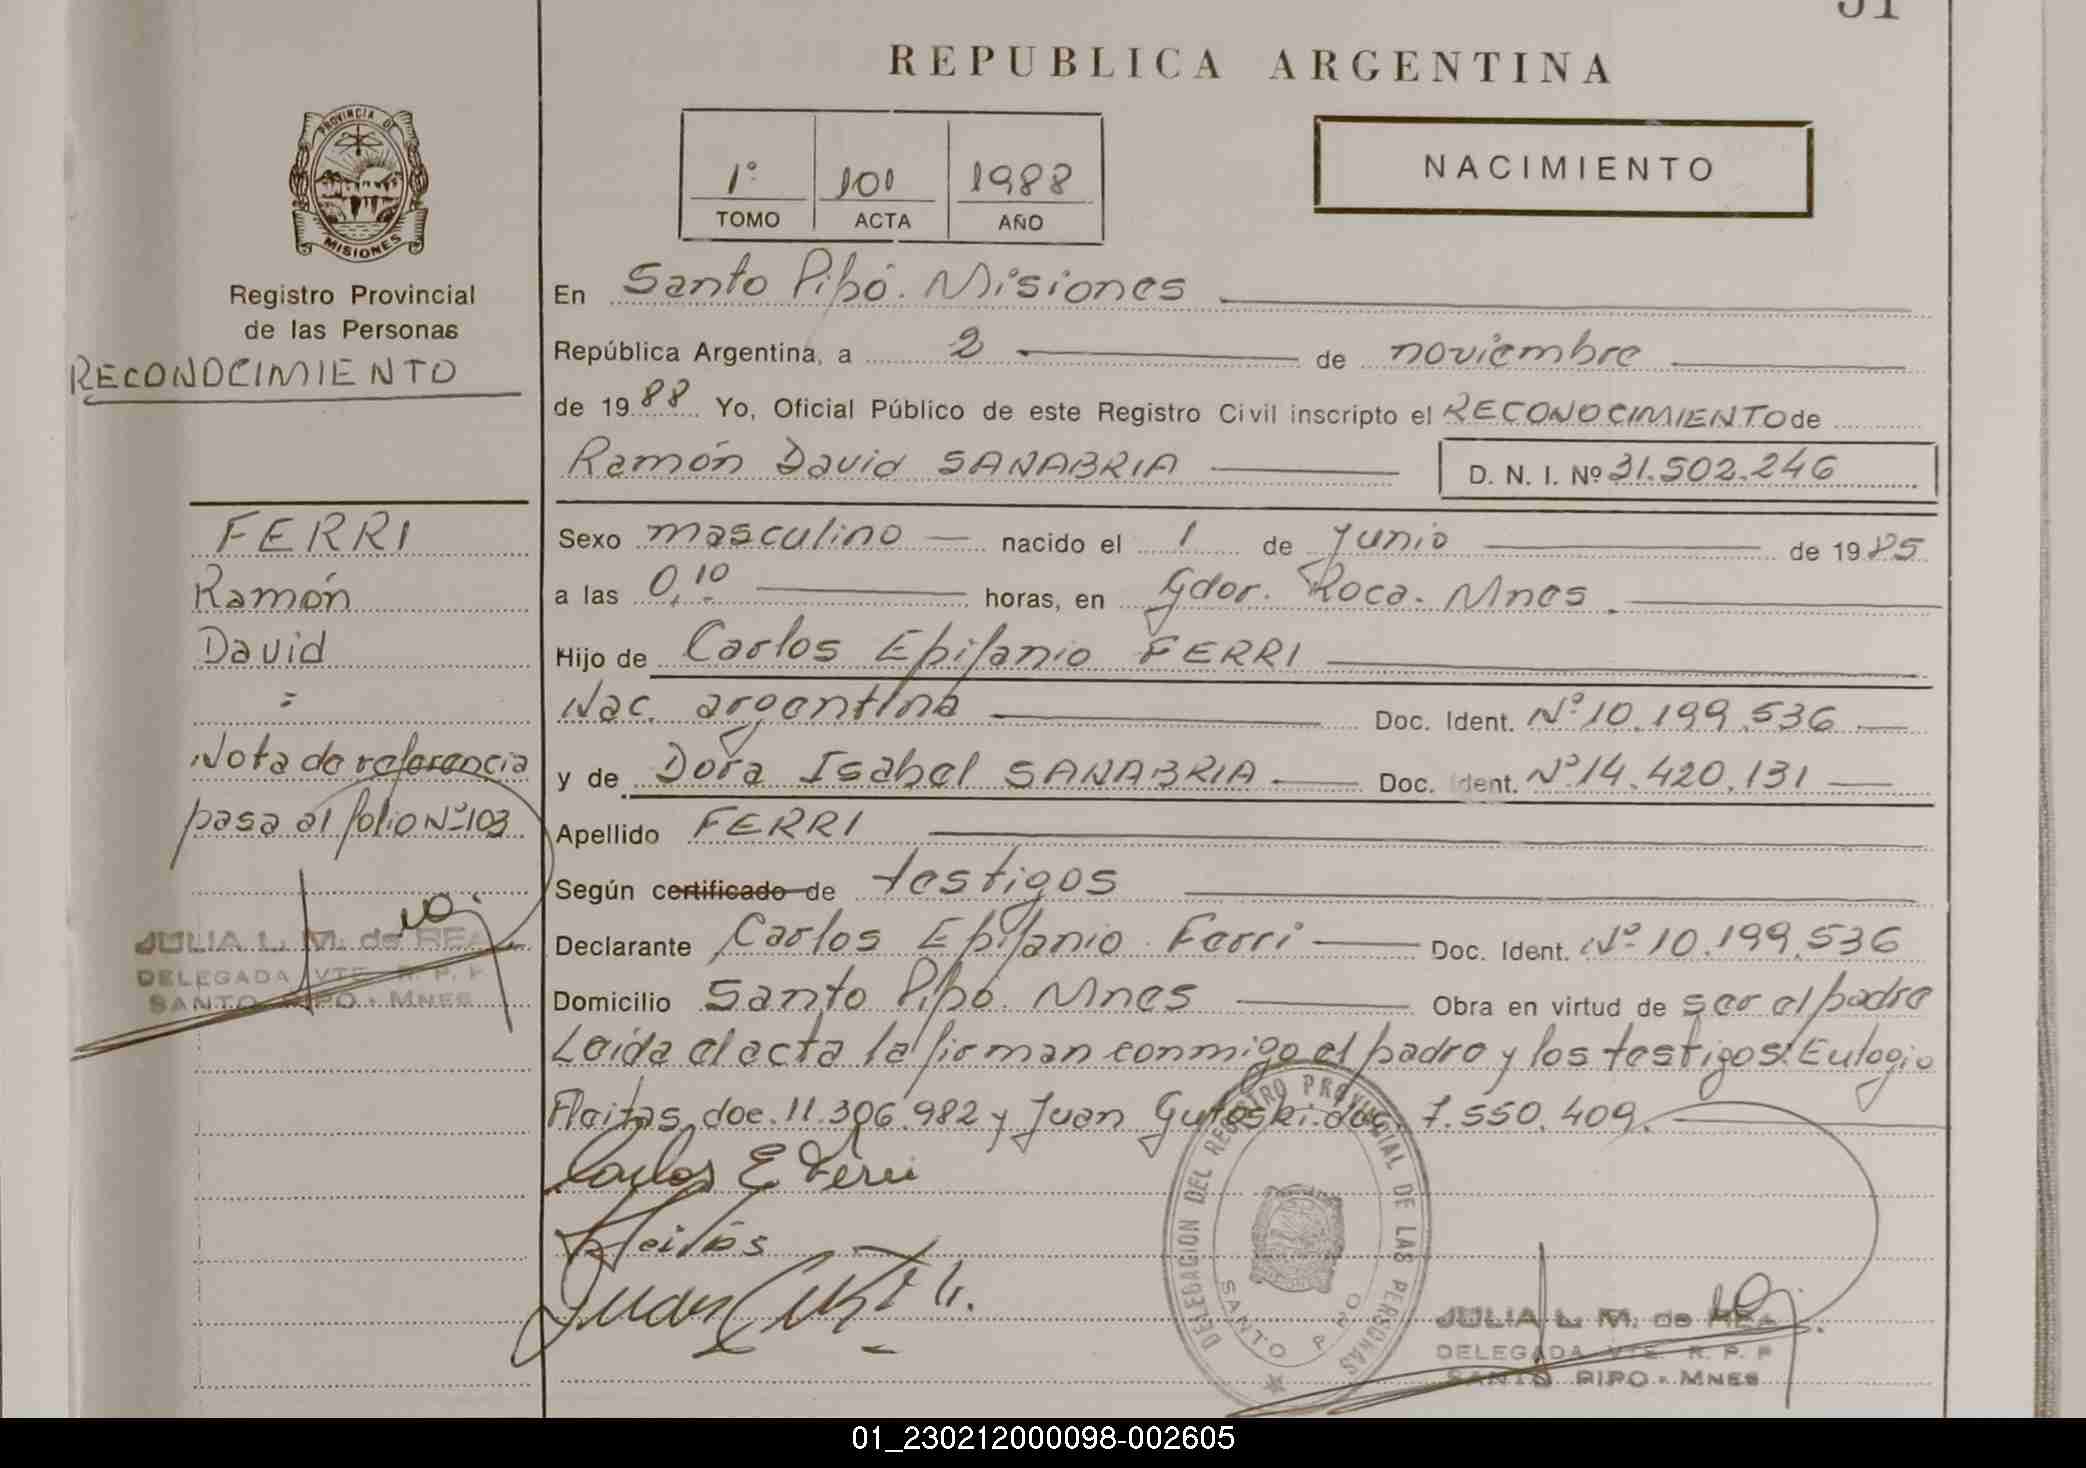 51
REPUBLICA ARGENTINA
PROVINCIA DE
MISIONES
1º 101 1988
TOMO ACTA AÑO
NACIMIENTO
Registro Provincial
de las Personas
RECONOCIMIENTO
En Santo Pipó. Misiones
República Argentina, a 2 de noviembre
de 1988 Yo, Oficial Público de este Registro Civil inscripto el RECONOCIMIENTO de
Ramón David SANABRIA D. N. I. Nº 31.502.246
FERRI
Ramón
David
=
Nota de referencia
pasa al folio Nº 103
JULIA L. M. de REA
DELEGADA VTE. R. P. P
SANTO PIPO - MNES
Sexo masculino nacido el 1 de Junio de 1985
a las 0,10 horas, en Gdor. Roca. Mnes
Hijo de Carlos Epifanio FERRI
Nac. argentina Doc. Ident. Nº 10.199.536
y de Dora Isabel SANABRIA Doc. Ident. Nº 14.420.131
Apellido FERRI
Según certificado de testigos
Declarante Carlos Epifanio Ferri Doc. Ident. Nº 10.199.536
Domicilio Santo Pipó. Mnes Obra en virtud de ser el padre
Leída el acta la firman conmigo el padre y los testigos: Eulogio
Fleitas, doc. 11.306.982 y Juan Gutoski. doc. 7.550.409.
Carlos E Ferri
Fleitas
Juan
DELEGACION DEL REGISTRO PROVINCIAL DE LAS PERSONAS
SANTO PIPO
JULIA L. M. de REA
DELEGADA VTE. R. P. P
SANTO PIPO - MNES
01_230212000098-002605